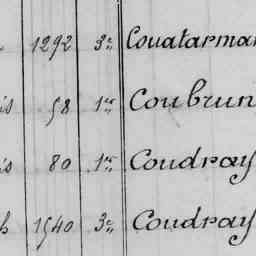 1292 3e Couatarman
is 58 1er Coubrun
is 80 1er Coudray
h 1540 3e Coudray